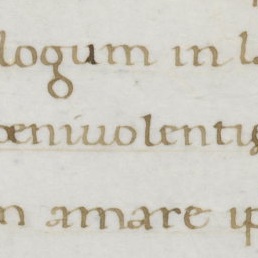 logum in l
beniuolentię
n amare ip